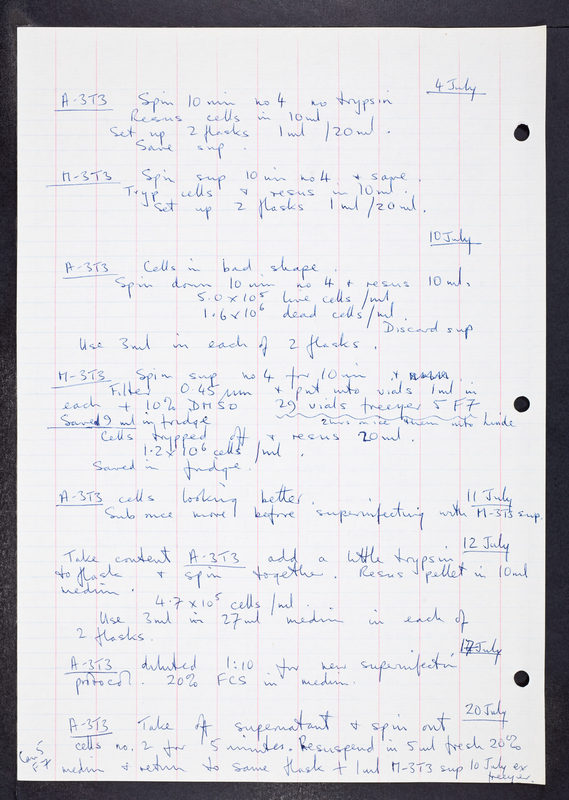 4 July
A-3T3 Spin 10 min no 4 no trypsin
Resus cells in 10ml
Set up 2 flasks 1ml / 20ml.
Save sup.
M-3T3 Spin sup 10 min no 4. & save.
Tryp cells & resus in 10ml.
Set up 2 flasks 1ml / 20ml.
10 July
A-3T3 Cells in bad shape.
Spin down 10 min no 4 & resus 10ml.
5.0 x 10⁵ live cells / ml
1.6 x 10⁶ dead cells / ml.
Discard sup
Use 3ml in each of 2 flasks.
M-3T3 Spin sup no 4 for 10 min &
Filter 0.45 µm & put into vials 1ml in
each + 10% DMSO 29 vials freezer 5 F7
Saved 9 ml in fridge 2hrs in ice then into Linde
Cells trypped off & resus 20ml.
1.2 x 10⁶ cells / ml.
Saved in fridge.
11 July
A-3T3 cells looking better.
Sub once more before superinfecting with M-3T3 sup.
12 July
Take content A-3T3 add a little trypsin
to flask & spin together. Resus pellet in 10ml
medium.
4.7 x 10⁵ cells / ml.
Use 3ml in 27ml medium in each of
2 flasks.
17 July
A-3T3 diluted 1:10 for new superinfectn
protocol. 20% FCS in medium.
20 July
A-3T3 Take off supernatant & spin out
cells no. 2 for 5 minutes. Resuspend in 5ml fresh 20%
5
F7
medium & return to same flask + 1ml M-3T3 sup 10 July ex
freezer.